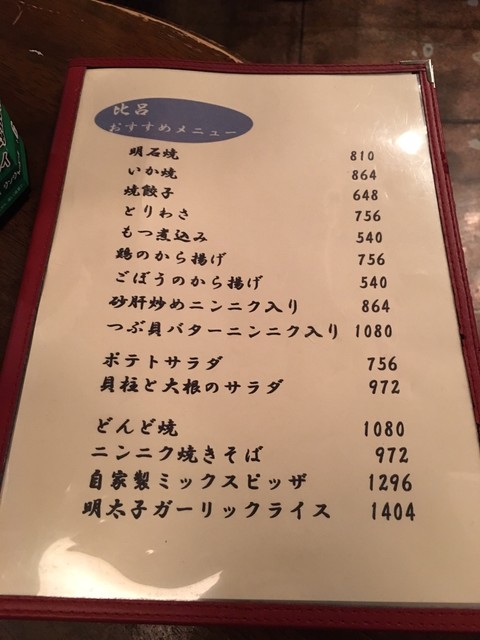 比呂
おすすめメニュー
明石焼 810
いか焼 864
焼餃子 648
とりわさ 756
もつ煮込み 540
鶏のから揚げ 756
ごぼうのから揚げ 540
砂肝炒めニンニク入り 864
つぶ貝バターニンニク入り 1080
ポテトサラダ 756
貝柱と大根のサラダ 972
どんど焼 1080
ニンニク焼きそば 972
自家製ミックスピッザ 1296
明太子ガーリックライス 1404